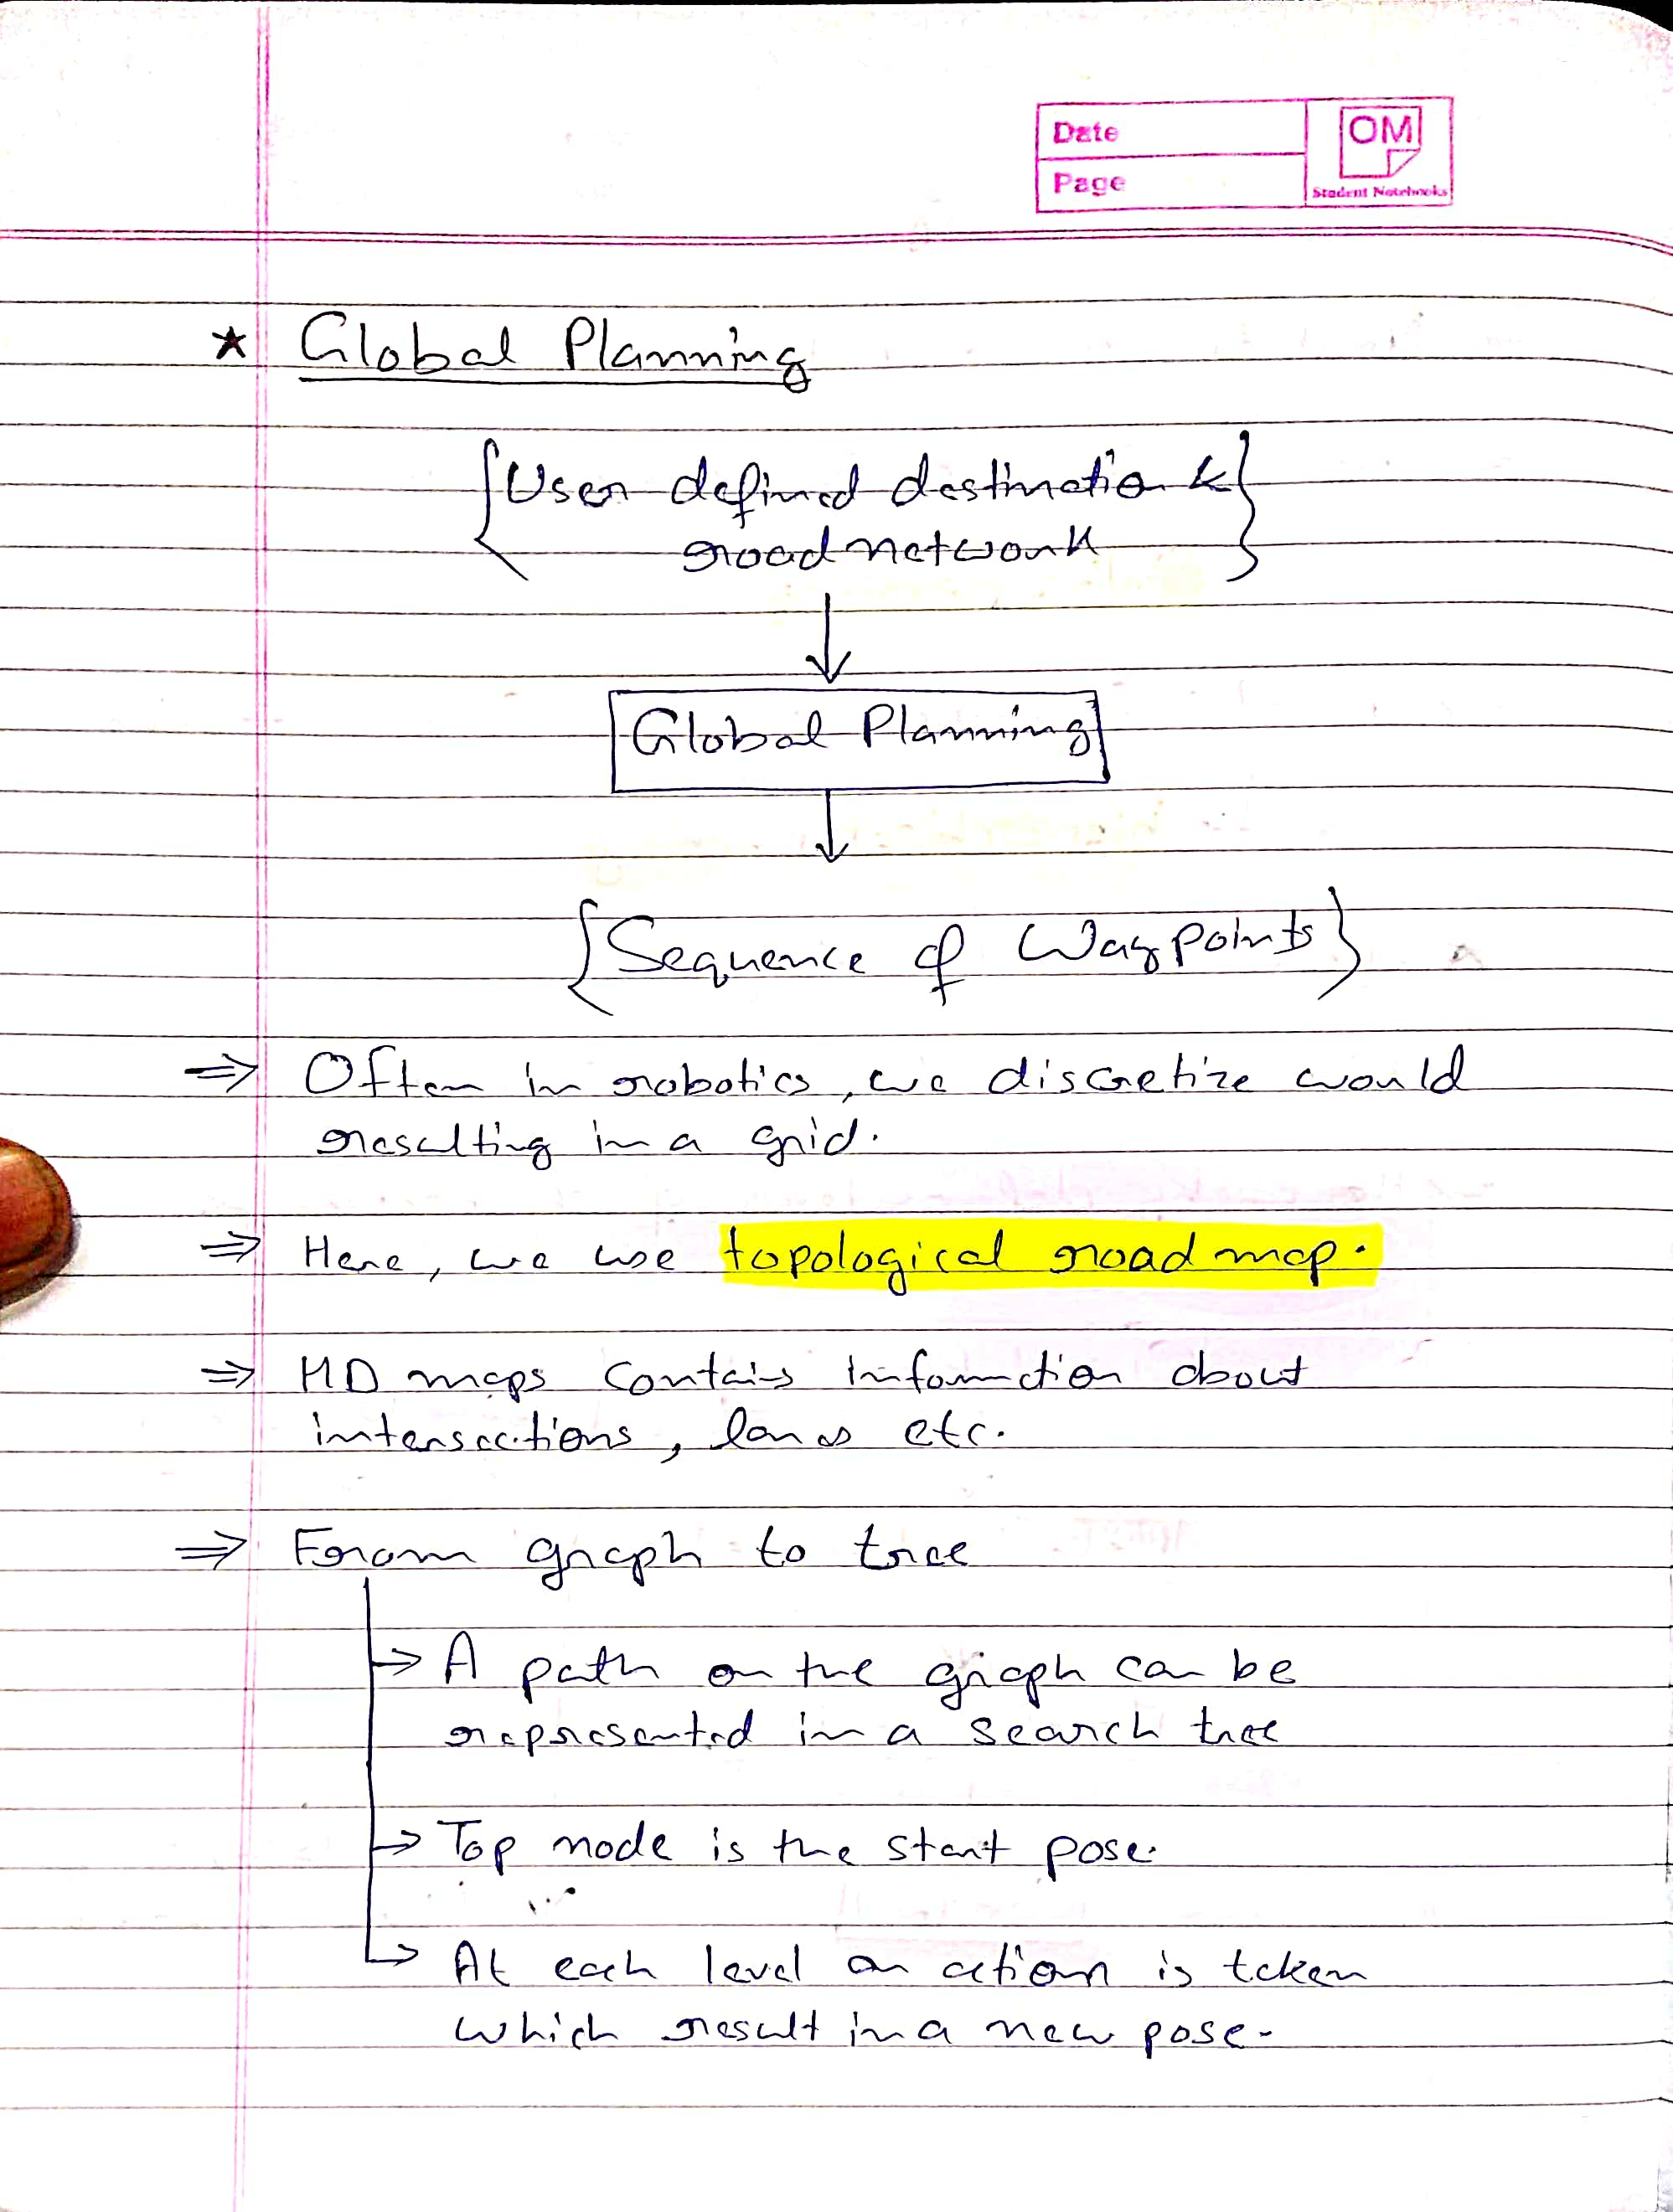 Date
OM
Page
Student Notebooks
* Global Planning
{User defined destinatio &}
road network
↓
Global Planning
↓
{Sequence of Way points}
⇒ Often in robotics, we discretize would
resulting in a grid.
⇒ Here, we use topological road map.
⇒ HD maps contains information about
intersections, lanes etc.
⇒ From graph to tree
→ A path on the graph can be
represented in a search tree
→ Top node is the start pose.
→ At each level an action is taken
which result in a new pose.